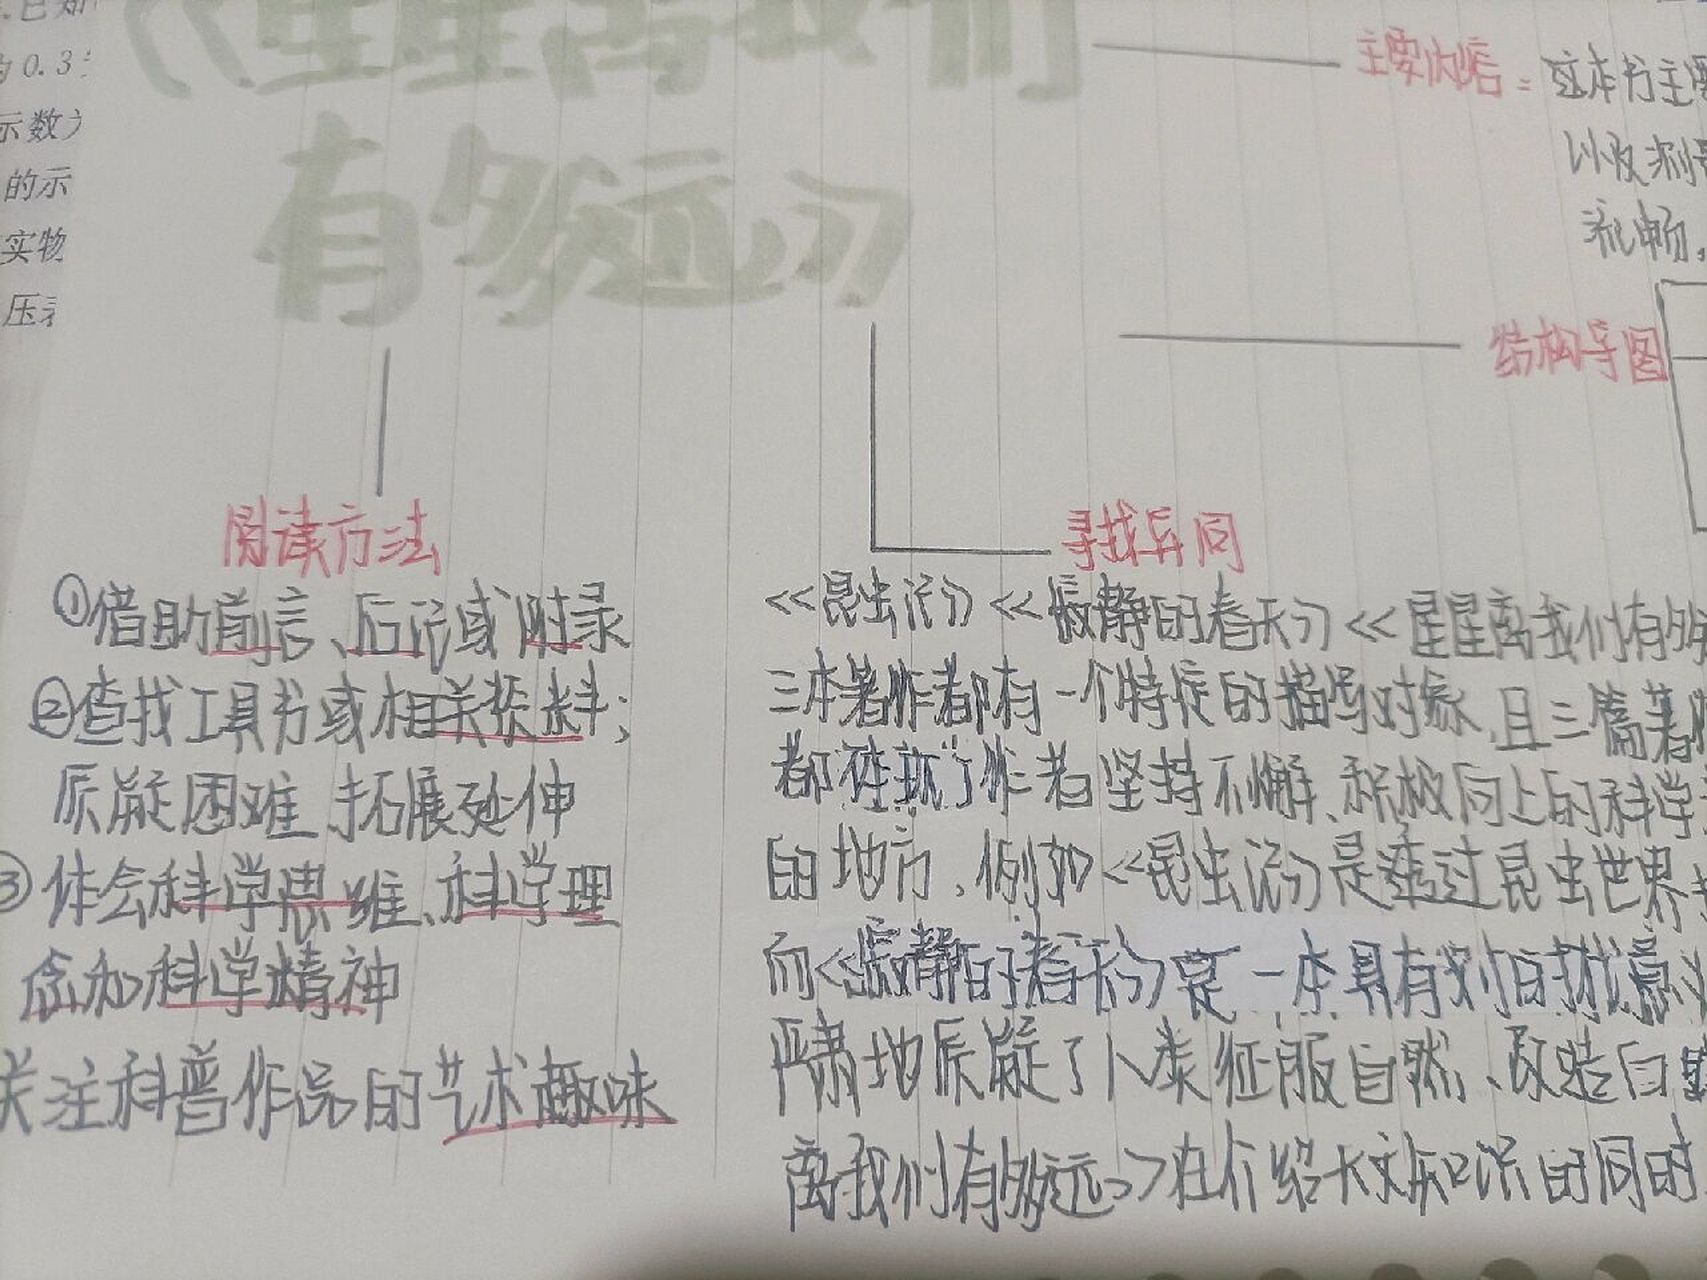 .已知
的0.3
示数
的示
实物
压表
《星星离我们
有多远》
主要内容：这本书主要
以及测量
流畅，
结构导图
阅读方法
①借助前言、后记或附录
②查找工具书或相关资料；
质疑困难、拓展延伸
③体会科学思维、科学理
念和科学精神
关注科普作品的艺术趣味
寻找异同
《昆虫记》《寂静的春天》《星星离我们有多
三本著作都有一个特定的描写对象，且三篇著作
都体现了作者坚持不懈、积极向上的科学
的地方，例如《昆虫记》是透过昆虫世界
而《寂静的春天》是一本具有划时代意义
严肃地质疑了人类征服自然、改造自然
离我们有多远》在介绍天文知识的同时